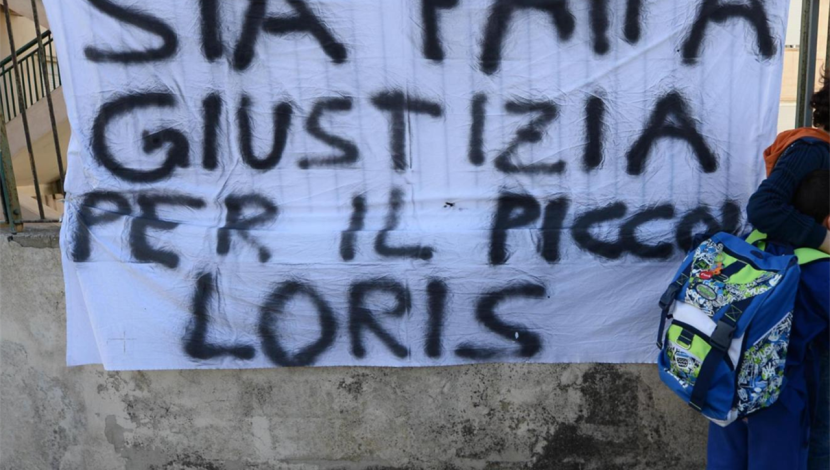 SIA FATTA
GIUSTIZIA
PER IL PICCOLO
LORIS